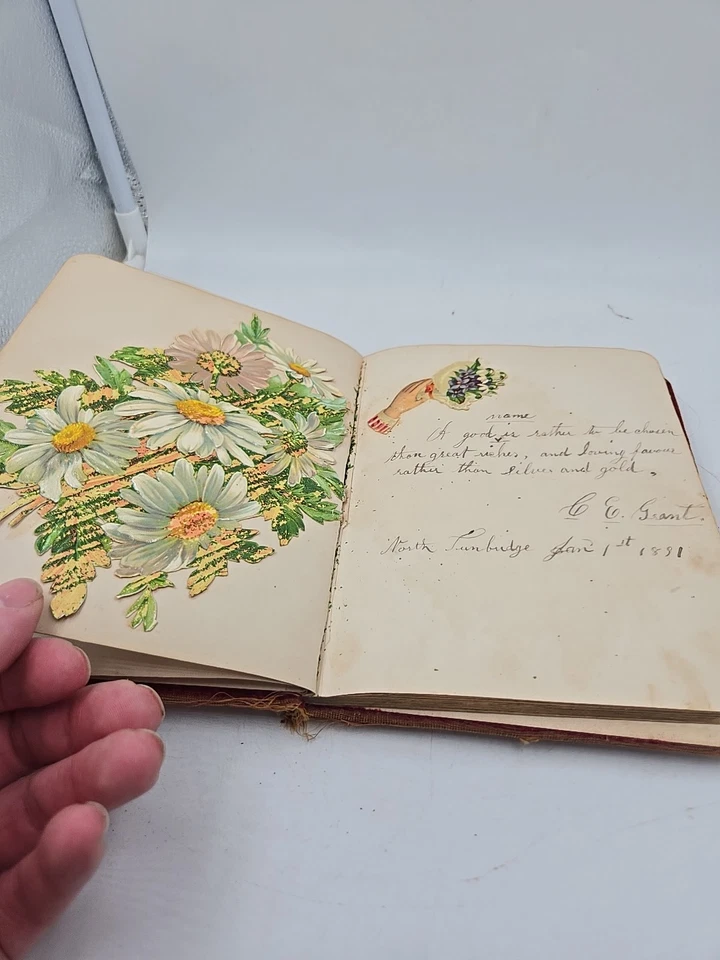 name
A good is rather to be chosen
than great riches, and loving favour
rather than silver and gold.
C. E. Grant.
North Tunbridge Jan 1st 1891